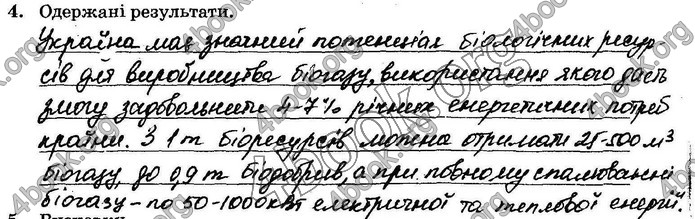 4. Одержані результати.
Україна має значний потенціал біологічних ресур-
сів для виробництва біогазу, використання якого дасть
змогу задовольнити 4-7% річних енергетичних потреб
країни. З 1 т біоресурсів можна отримати 25-500 м³
біогазу, до 0,9 т біодобрив, а при повному спалюванні
біогазу – по 50-1000 кВт електричної та теплової енергії.